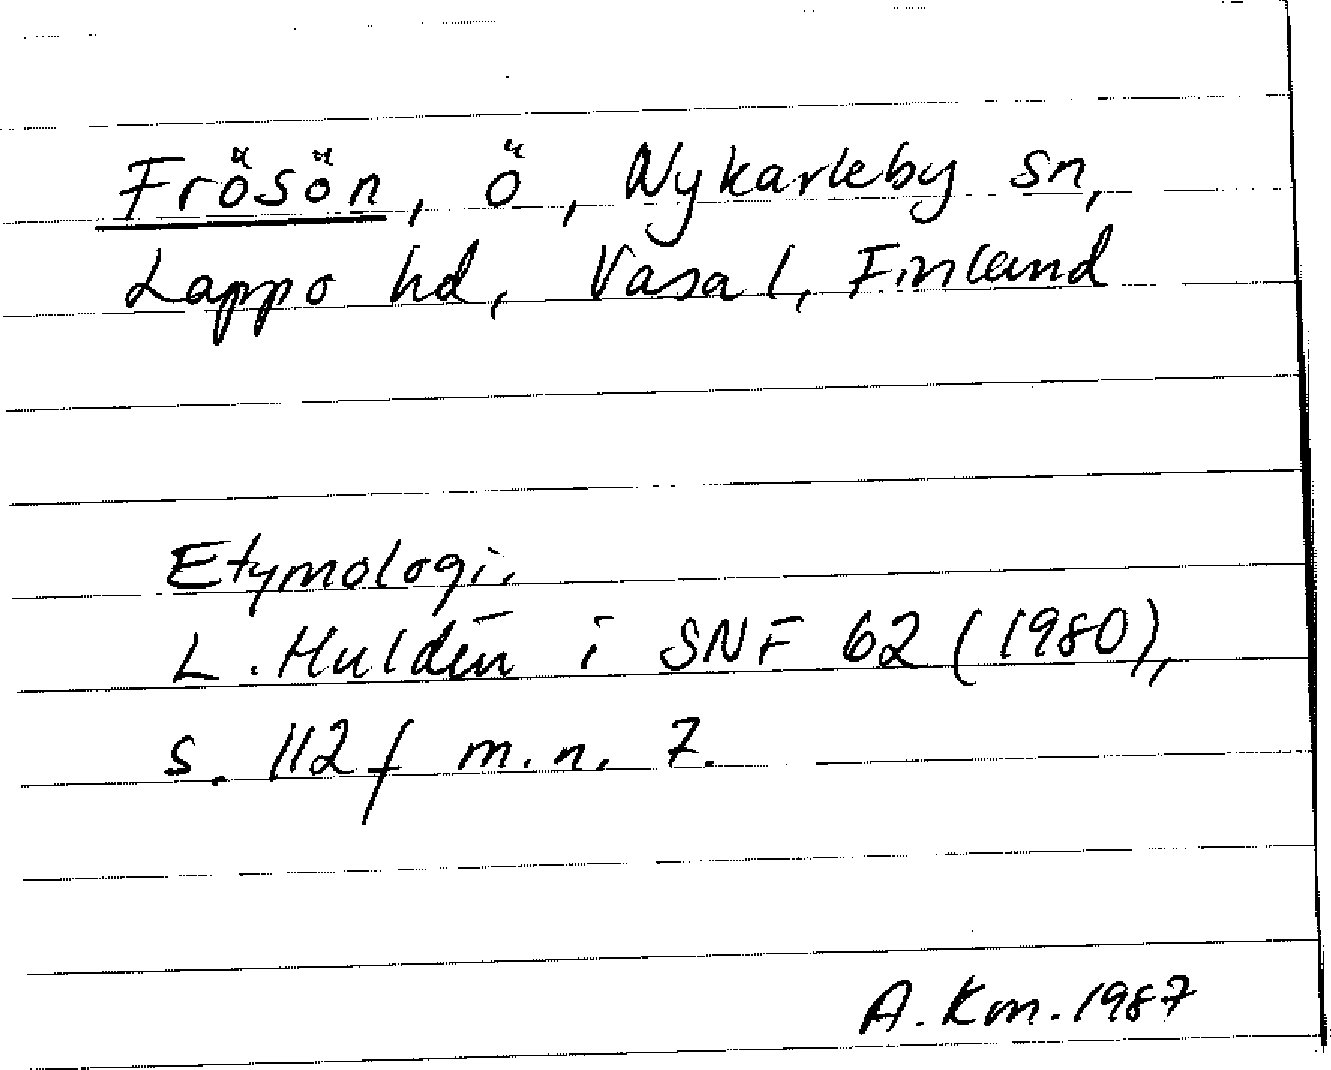 Frösön, ö, Nykarleby sn,
Lappo hd, Vasa l, Finland
Etymologi.
L. Huldén i SNF 62 (1980),
s. 112 f m. n. 7.
A. Km. 1987